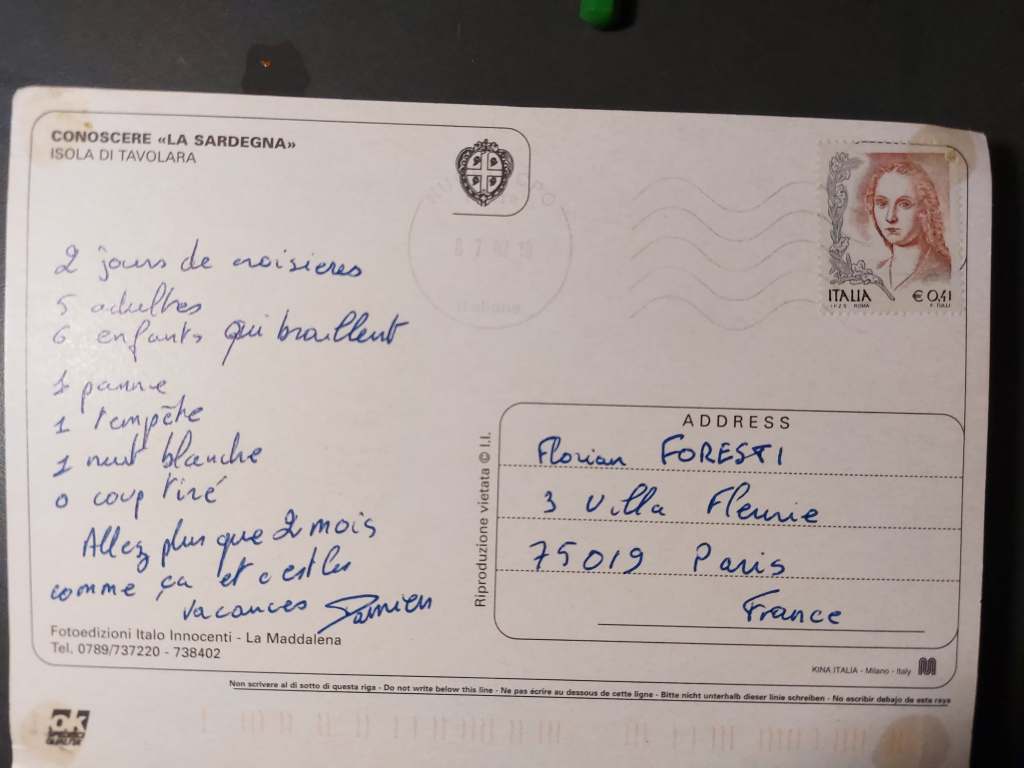 CONOSCERE «LA SARDEGNA»
ISOLA DI TAVOLARA
ITALIA € 0,41
2 jours de croisieres
5 adultes
6 enfants qui braillent
1 panne
1 tempête
1 nuit blanche
0 coup tiré
Allez plus que 2 mois
comme ça et c'est les
vacances Damien
ADDRESS
Florian FORESTI
3 Villa Fleurie
75019 Paris
France
Riproduzione vietata © I.I.
Fotoedizioni Italo Innocenti - La Maddalena
Tel. 0789/737220 - 738402
KINA ITALIA - Milano - Italy
Non scrivere al di sotto di questa riga - Do not write below this line - Ne pas écrire au dessous de cette ligne - Bitte nicht unterhalb dieser linie schreiben - No escribir debajo de esta raya
ok